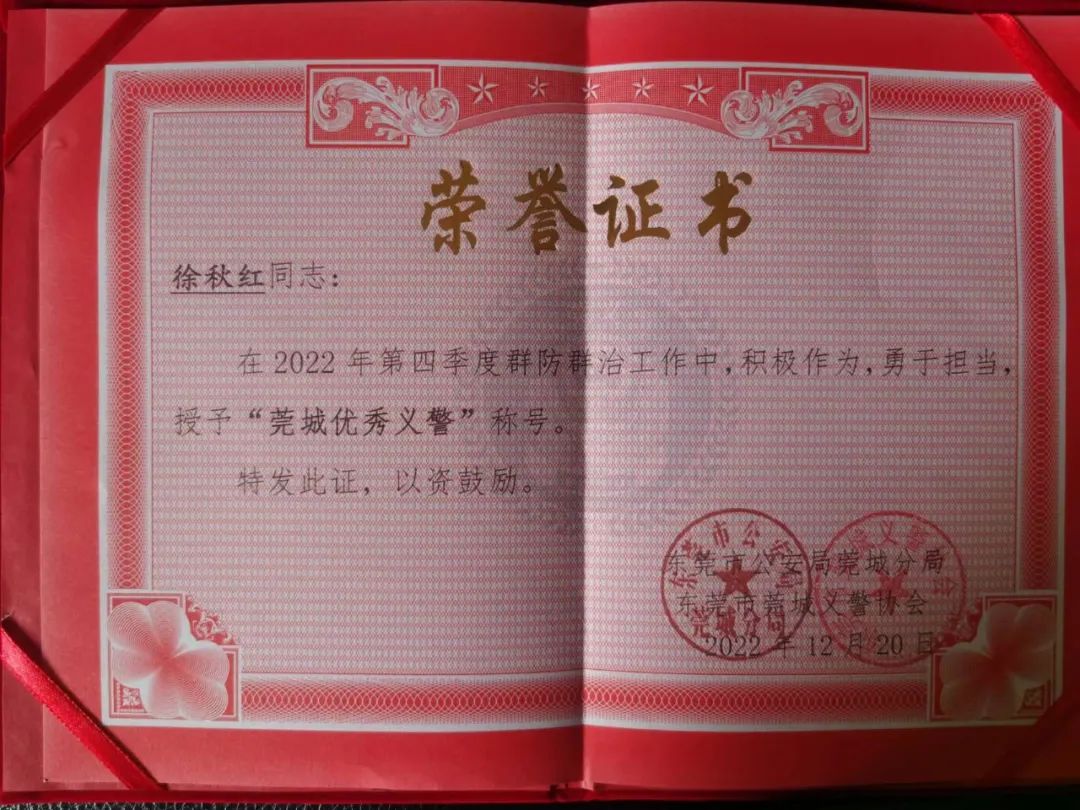 荣誉证书
徐秋红同志:
在2022年第四季度群防群治工作中,积极作为,勇于担当,
授予“莞城优秀义警”称号。
特发此证，以资鼓励。
东莞市公安局莞城分局
东莞市莞城义警协会
2022年12月20日
东莞市公安局
莞城分局